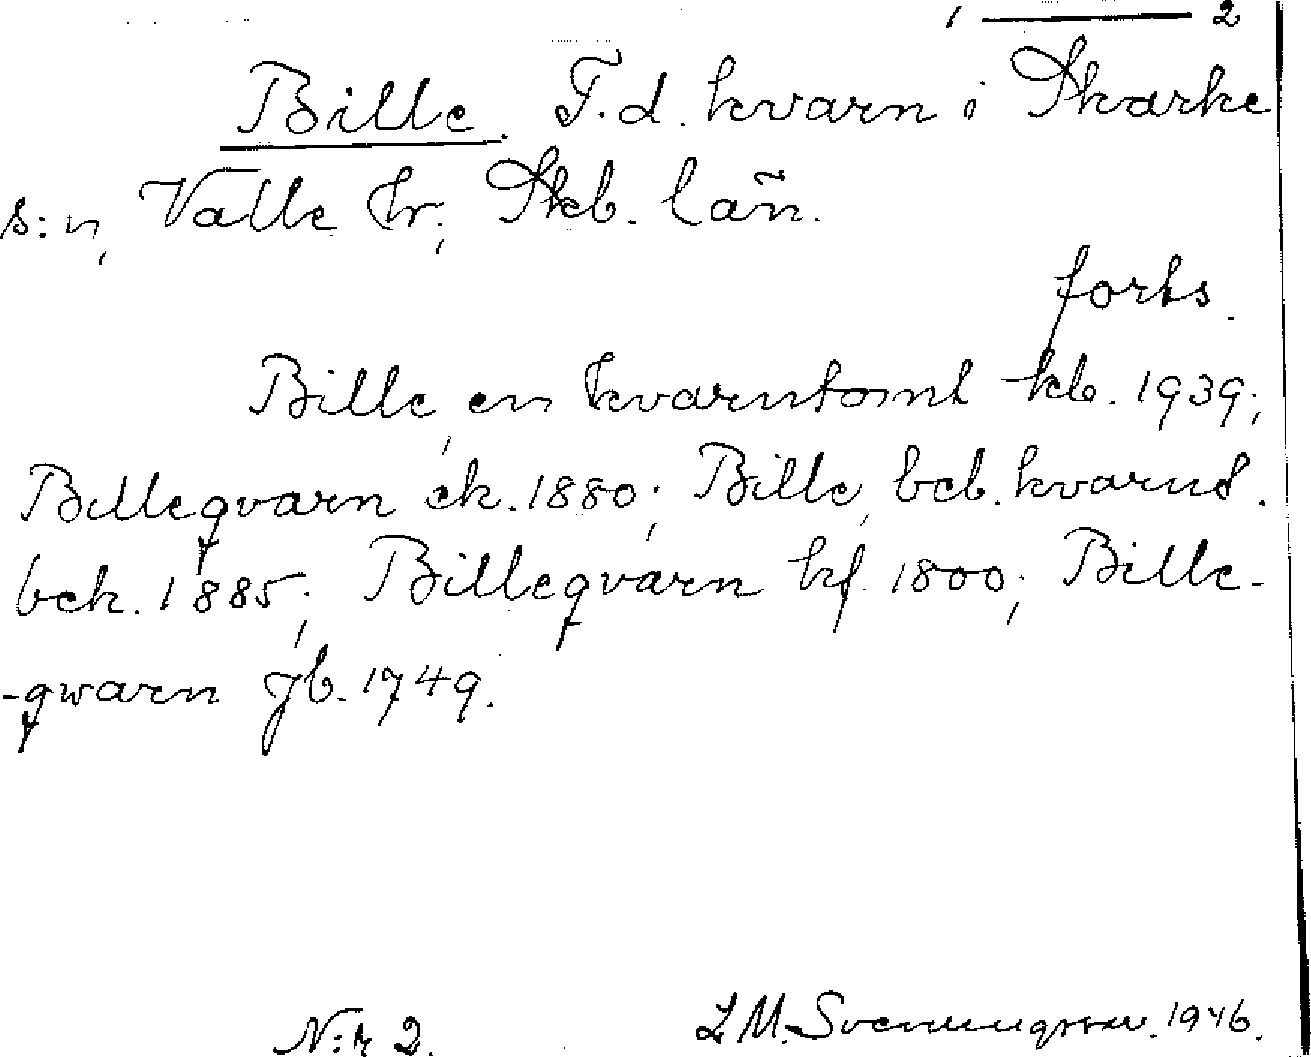 1 — 2
Bille. F.d. kvarn i Skarke
s:n, Valle hr; Skb. län.
forts.
Bille, en kvarntomt kb. 1939;
Billeqvarn ek. 1880; Bille, beb. kvarnst.
bek. 1885; Billeqvarn kf. 1800; Bille-
-qwarn jb. 1749.
N:r 2. L M. Svenungsson. 1946.